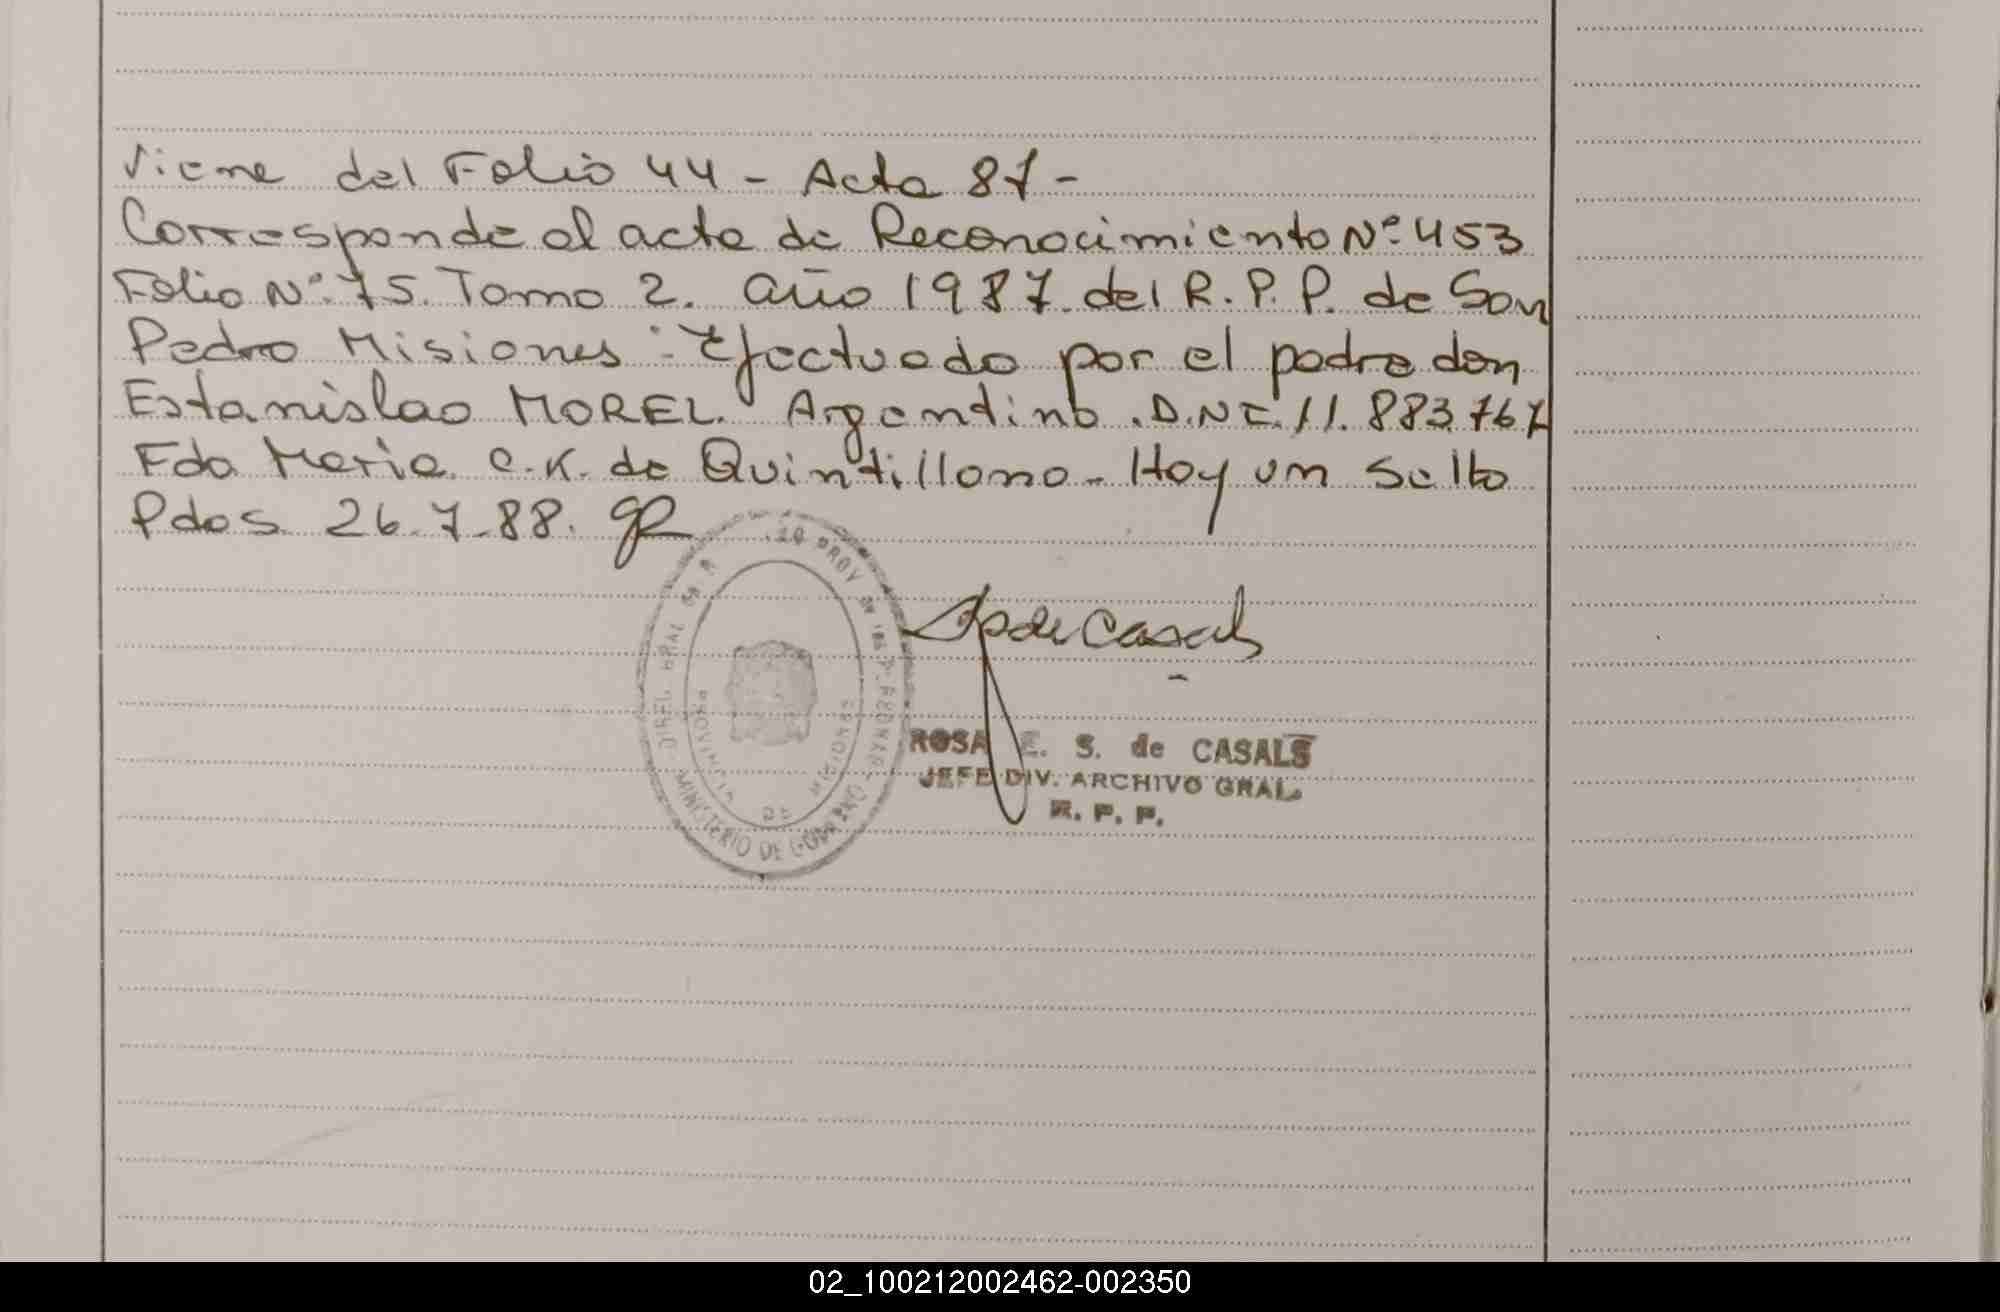 Viene del Folio 44 - Acta 87 -
Corresponde al acta de Reconocimiento Nº 453
Folio Nº 75. Tomo 2. año 1987. del R.P.P. de San
Pedro Misiones: Efectuado por el padre don
Estanislao MOREL. Argentino. D.N.I. 11.883.767
Fdo Maria C.K. de Quintillano - Hoy un sello
Pdas 26.7.88.
MINISTERIO DE GOBIERNO
PROVINCIA DE MISIONES
de Casals
ROSA E. S. de CASALS
JEFE DIV. ARCHIVO GRAL.
R. P. P.
02_100212002462-002350